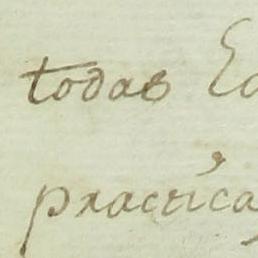 todas
practica